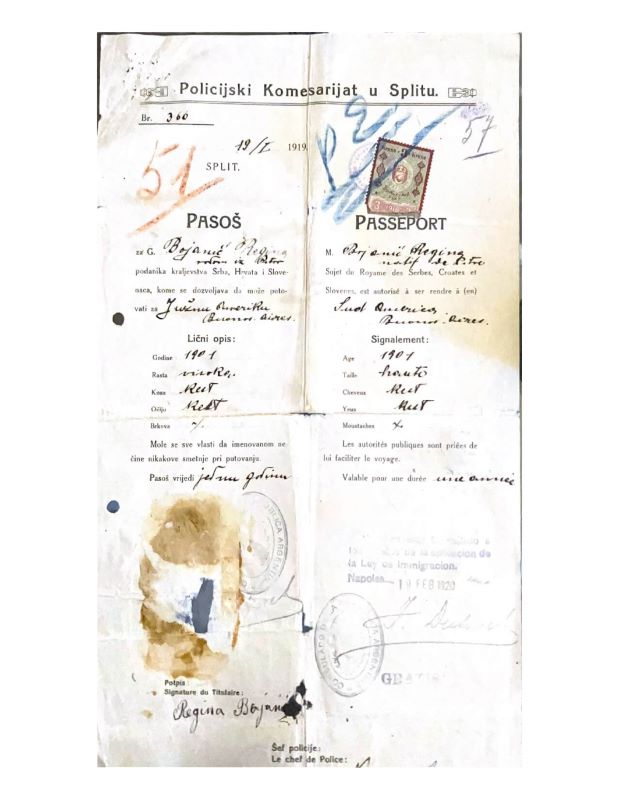 Policijski Komesarijat u Splitu.
Br. 360
57
19/I 1919
SPLIT.
51
PASOŠ
za G. Bojanić Regina
podanika kraljevstva Srba, Hrvata i Slove-
nsca, kome se dozvoljava da može puto-
vati za Južnu Ameriku
Buenos-Aires.
Lični opis:
Godine 1901
Rasta visoka
Kosa
Očiju
Brkova
Mole se sve vlasti da imenovanom ne
čine nikakove smetnje pri putovanju.
Pasoš vrijedi jednu godinu
PASSEPORT
M. Bojanić Regina
natif de
Sujet du Royame des Serbes, Croates et
Slovenes, est autorisé à ser rendre à (en)
Sud America
Buenos-Aires.
Signalement:
Age 1901
Taille haute
Cheveux
Yeux
Moustaches
Les autorités publiques sont priées de
lui faciliter le voyage.
Valable pour une durée une année
de la aplicacion de
la Ley de Inmigracion.
Napoles 19 FEB 1920
GRATIS
Potpis:
Signature du Titulaire:
Regina Bojanić
Šef policije:
Le chef de Police: